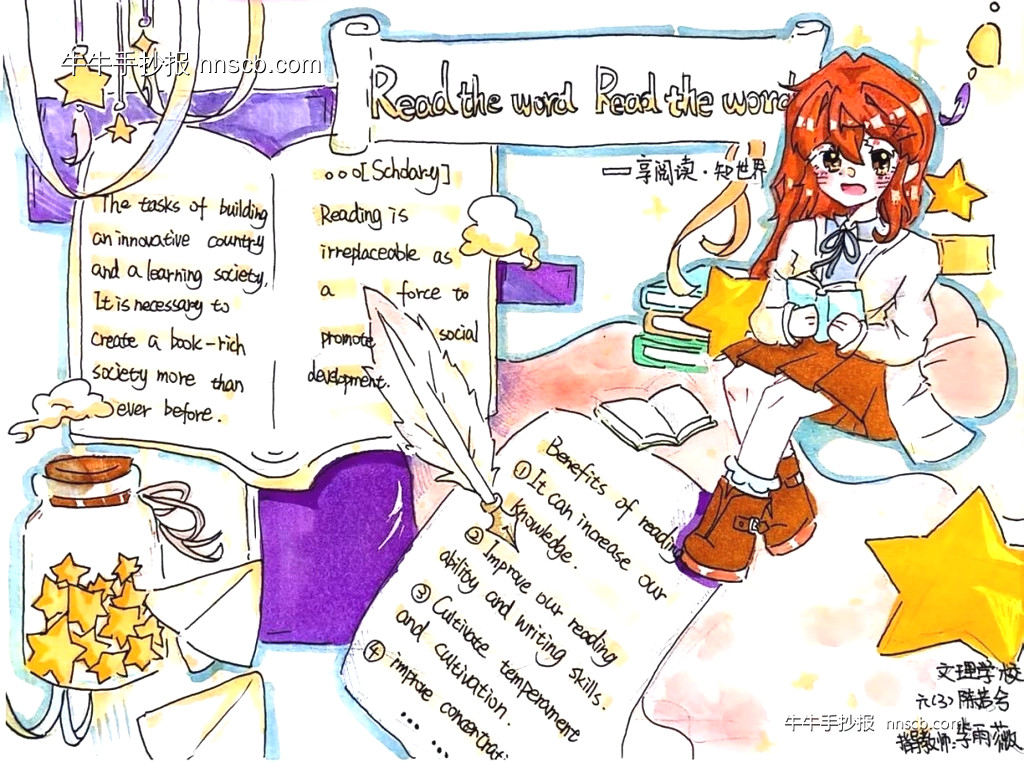 牛牛手抄报 nnscb.com
Read the word Read the word
一享阅读·知世界
The tasks of building
an innovative country
and a learning society,
It is necessary to
create a book-rich
society more than
ever before.
[Schdary]
Reading is
irreplaceable as
a force to
promote social
development.
Benefits of reading
① It can increase our
knowledge.
② Improve our reading
ability and writing skills.
③ Cultivate temperament
and cultivation.
④ improve concentrati
... ...
文理学校
六(3)陈若兮
指导教师:李雨薇
牛牛手抄报 nnscb.com